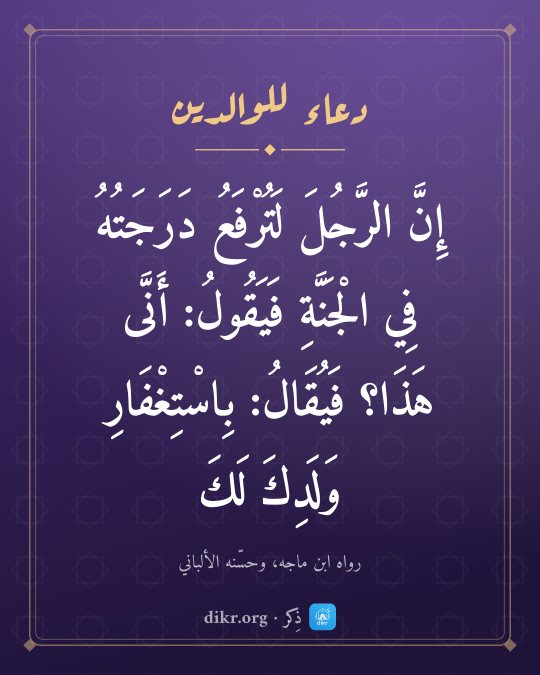 دعاء للوالدين
إِنَّ الرَّجُلَ لَتُرْفَعُ دَرَجَتُهُ
فِي الْجَنَّةِ فَيَقُولُ: أَنَّى
هَذَا؟ فَيُقَالُ: بِاسْتِغْفَارِ
وَلَدِكَ لَكَ
رواه ابن ماجه، وحسّنه الألباني
ذِكر · dikr.org
dikr